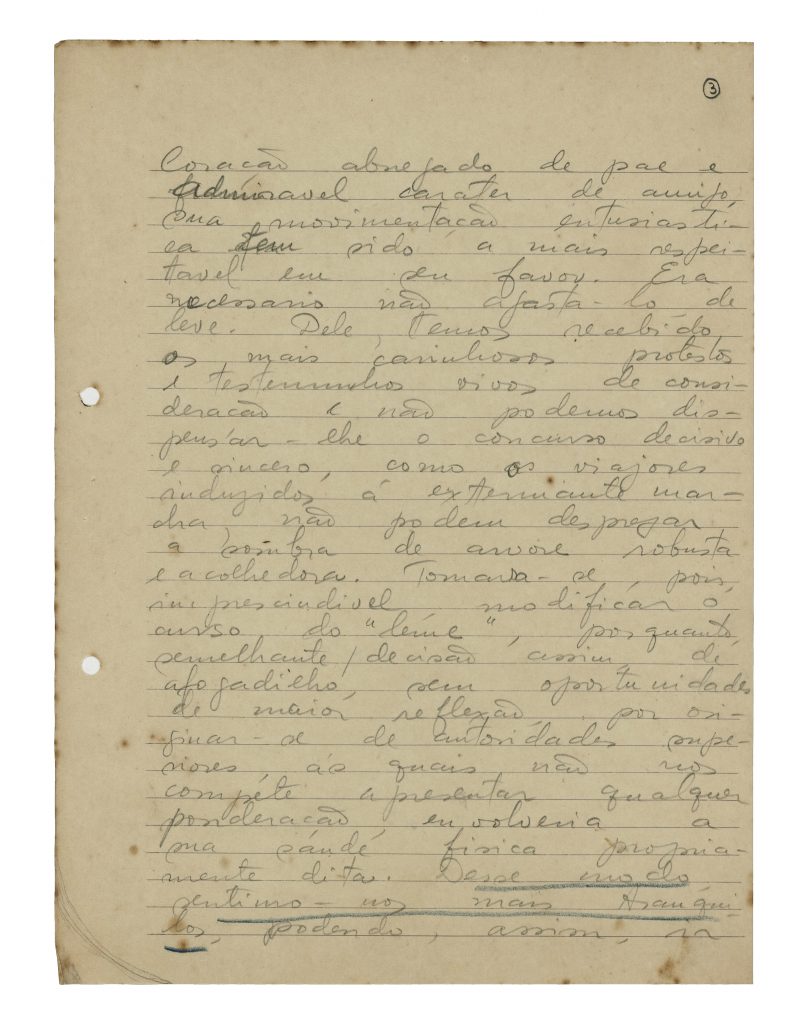 3
Coração abnegado de pae e
admiravel carater de amigo,
sua movimentação entusiasti-
ca tem sido a mais respei-
tavel em seu favor. Era
necessario não afastá-lo de
leve. Dele, temos recebido
os mais carinhosos protestos
e testemunhos vivos de consi-
deração e não podemos dis-
pensar-lhe o concurso decisivo
e sincero, como os viajores
induzidos á extermiante mar-
cha, não podem desprezar
a sombra de arvore robusta
e acolhedora. Tornava-se, pois,
imprescindivel modificar o
curso do "léme", porquanto,
semelhante decisão assim, de
afogadilho, sem oportunidades
de maior reflexão, por ori-
ginar-se de autoridades supe-
riores, ás quais não nos
compéte apresentar qualquer
ponderação, envolveria a
sua saúde fisica propria-
mente dita. Desse modo
sentimo-nos mais tranqui-
los, podendo, assim, ir